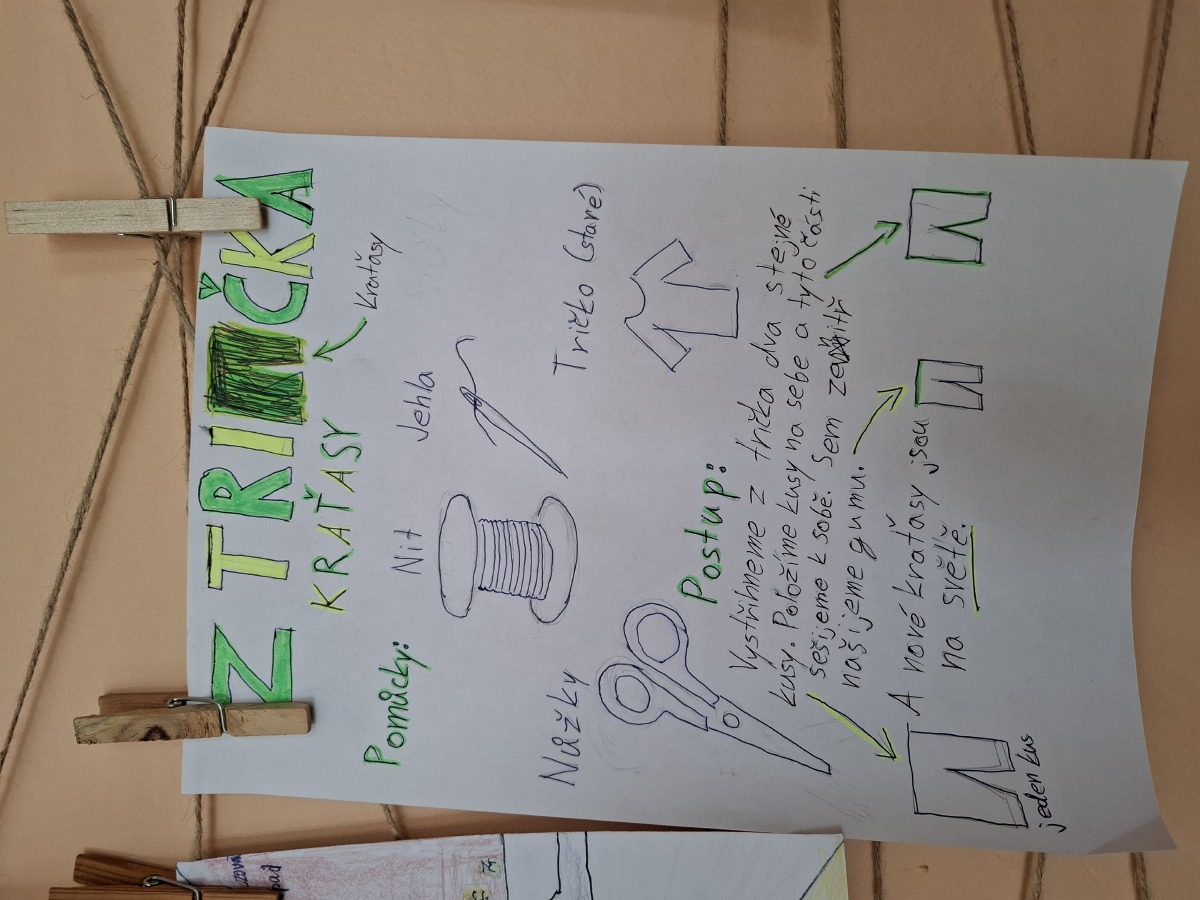 Z TRIČKA
KRAŤASY
Kraťasy
Pomůcky:
Nit
Jehla
Nůžky
Tričko (staré)
Postup:
Vystřihneme z trička dva stejné
kusy. Položíme kusy na sebe a tyto části
sešijeme k sobě. Sem zevnitř
našijeme gumu.
A nové kraťasy jsou
na světě.
jeden kus